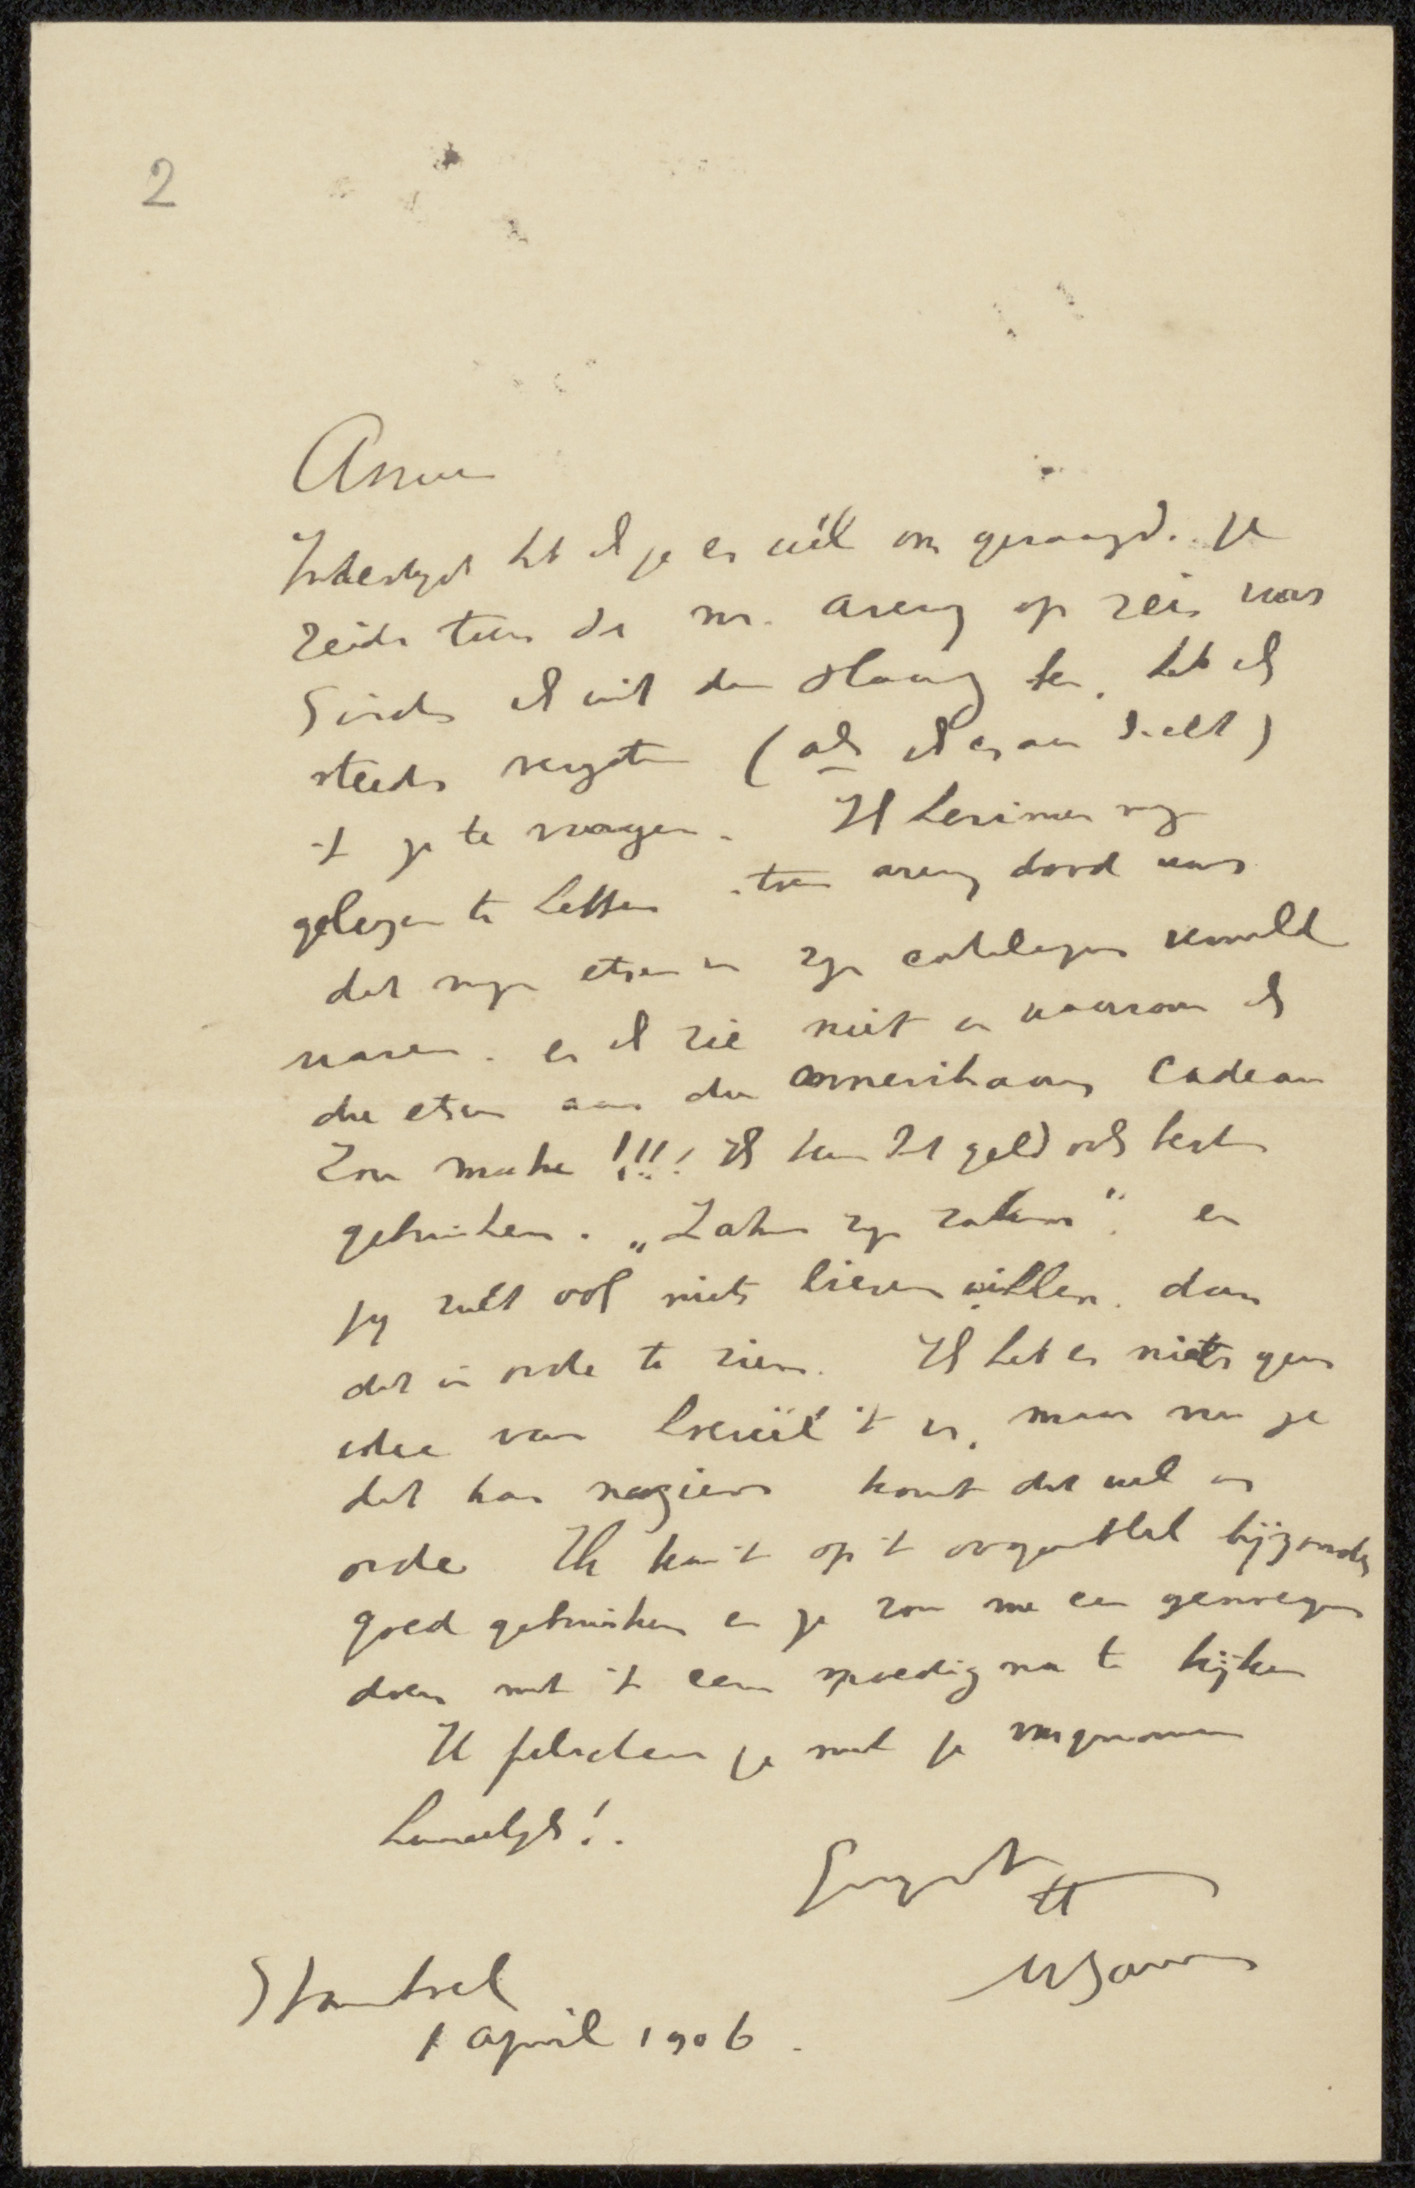 2
Indertijd heb ik je er wél om gevraagd. Je
zeide toen de mr. Arency op reis was
Sinds ik uit den Haag ben, heb ik
steeds vergeten (als ik er aan dacht)
't je te vragen. Ik herinner mij
gelezen te hebben toen dood was
dat mijn etsen in zijn catalogus vermeld
waren. en ik zie niet in waarom ik
die etsen aan den Amerikaan cadeau
zou maken !!!! Ik kan het geld ook best
gebruiken. „Zaken zijn zaken". en
jij zult ook niets liever willen dan
dat in orde te zien. Ik heb er niets geen
idee van hoeveel 't is, maar nu je
dat kan nazien komt dat wel in
orde Ik kan 't op 't oogenblik bijzonder
goed gebruiken en je zou me een genoegen
doen met 't eens spoedig na te kijken
Ik feliciteer je met je
hartelijk!.
Gegroet
MBauer
1 april 1906.